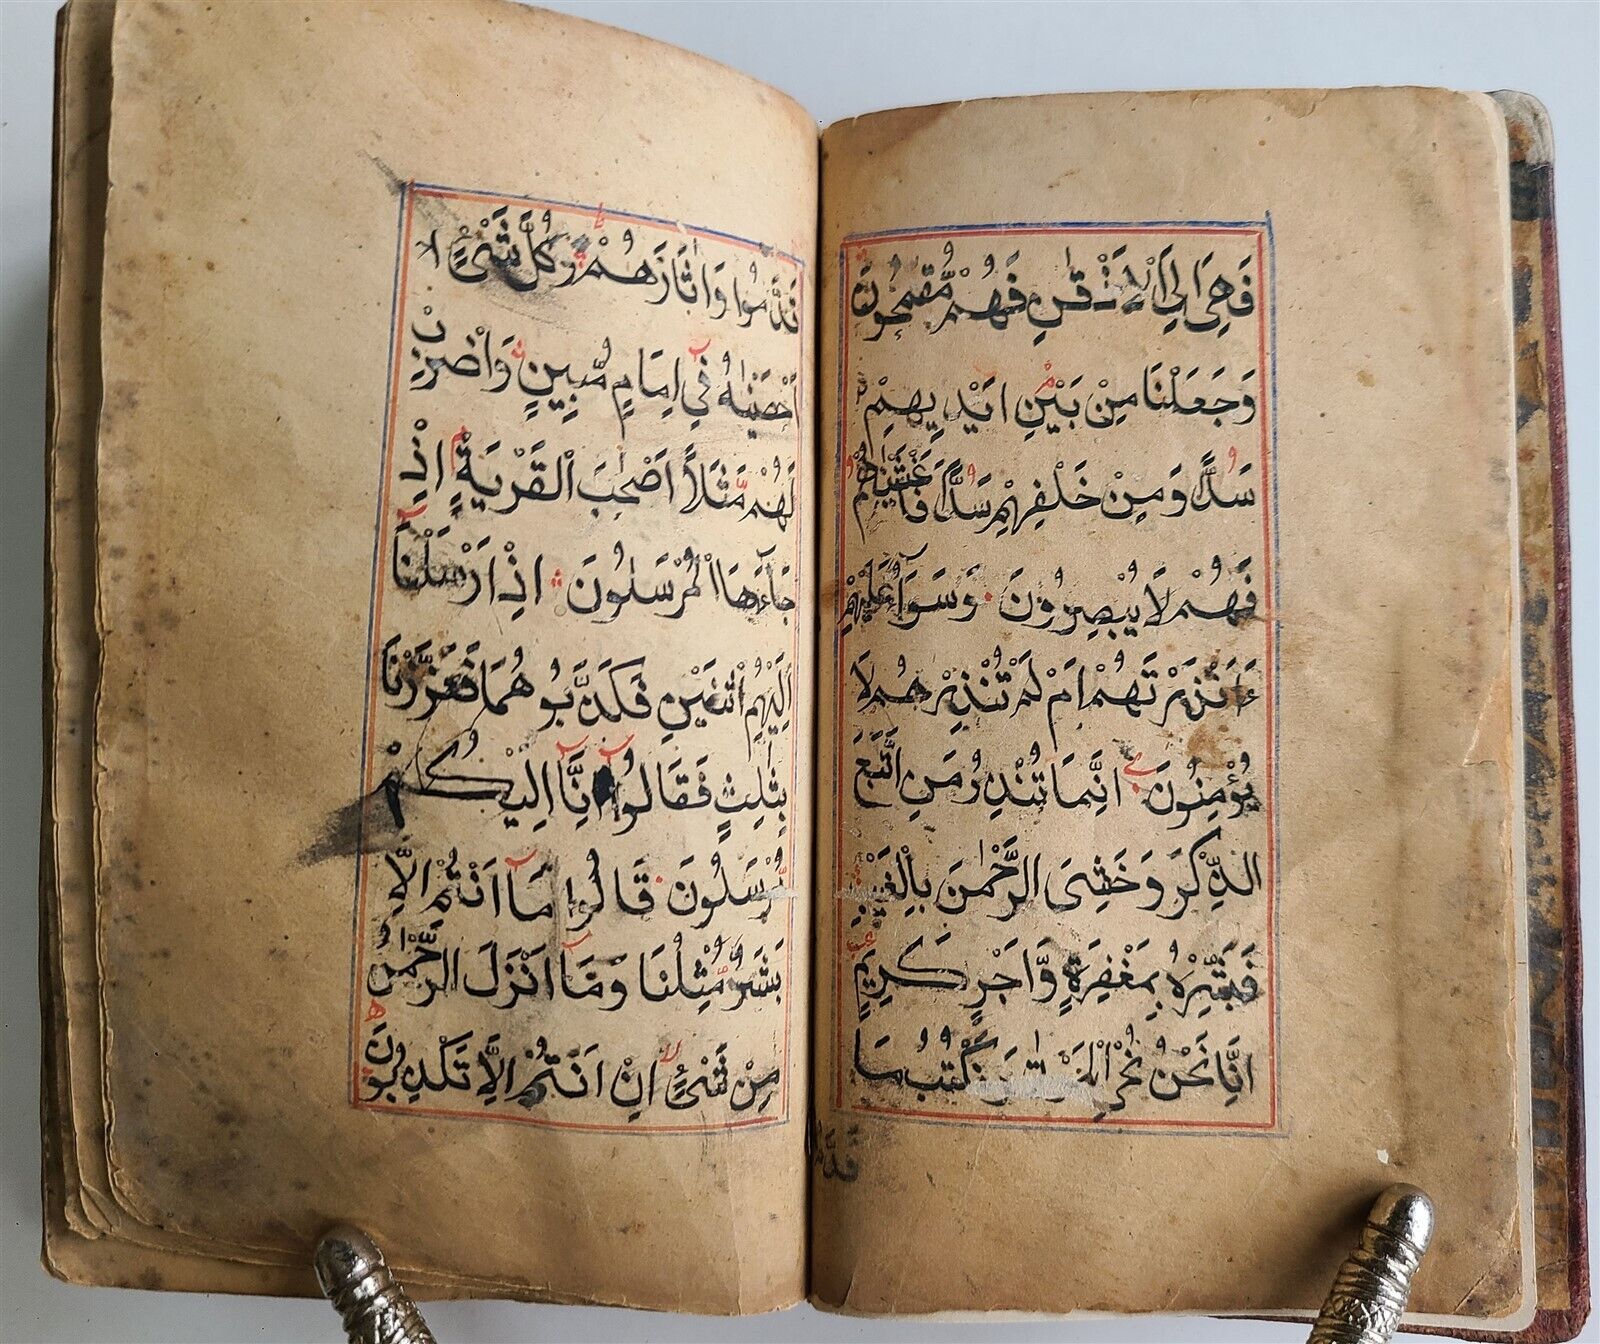 فَهِيَ اِلَى الْاَذْقَانِ فَهُمْ مُّقْمَحُوْنَ
وَجَعَلْنَا مِنْ بَيْنِ اَيْدِيْهِمْ
سَدًّا وَّمِنْ خَلْفِهِمْ سَدًّا فَاَغْشَيْنٰهُمْ
فَهُمْ لَا يُبْصِرُوْنَ وَسَوَآءٌ عَلَيْهِمْ
ءَاَنْذَرْتَهُمْ اَمْ لَمْ تُنْذِرْهُمْ لَا
يُؤْمِنُوْنَ اِنَّمَا تُنْذِرُ مَنِ اتَّبَعَ
الذِّكْرَ وَخَشِيَ الرَّحْمٰنَ بِالْغَيْبِ
فَبَشِّرْهُ بِمَغْفِرَةٍ وَّاَجْرٍ كَرِيْمٍ
اِنَّا نَحْنُ نُحْيِ الْمَوْتٰى وَنَكْتُبُ مَا
قدموا
قَدَّمُوْا وَاٰثَارَهُمْ وَكُلَّ شَيْءٍ
اَحْصَيْنٰهُ فِيْ اِمَامٍ مُّبِيْنٍ وَاضْرِبْ
لَهُمْ مَّثَلًا اَصْحٰبَ الْقَرْيَةِ اِذْ
جَآءَهَا الْمُرْسَلُوْنَ اِذْ اَرْسَلْنَا
اِلَيْهِمُ اثْنَيْنِ فَكَذَّبُوْهُمَا فَعَزَّزْنَا
بِثَالِثٍ فَقَالُوْا اِنَّا اِلَيْكُمْ
مُّرْسَلُوْنَ قَالُوْا مَآ اَنْتُمْ اِلَّا
بَشَرٌ مِّثْلُنَا وَمَآ اَنْزَلَ الرَّحْمٰنُ
مِنْ شَيْءٍ اِنْ اَنْتُمْ اِلَّا تَكْذِبُوْنَ